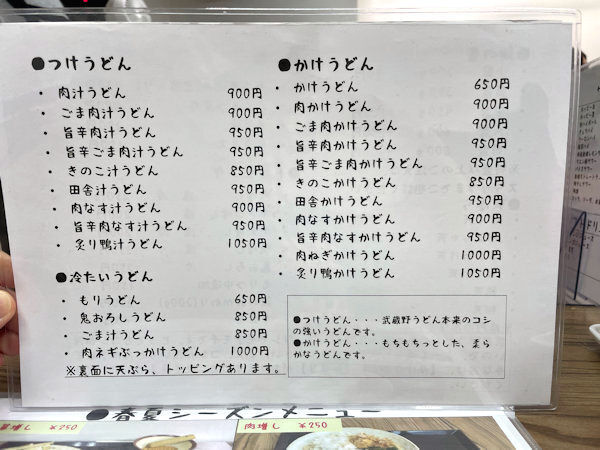 ●つけうどん
・肉汁うどん 900円
・ごま肉汁うどん 900円
・旨辛肉汁うどん 950円
・旨辛ごま肉汁うどん 950円
・きのこ汁うどん 850円
・田舎汁うどん 950円
・肉なす汁うどん 900円
・旨辛肉なす汁うどん 950円
・炙り鴨汁うどん 1050円
●冷たいうどん
・もりうどん 650円
・鬼おろしうどん 850円
・ごま汁うどん 850円
・肉ネギぶっかけうどん 1000円
※裏面に天ぷら、トッピングあります。
●かけうどん
・かけうどん 650円
・肉かけうどん 900円
・ごま肉かけうどん 900円
・旨辛肉かけうどん 950円
・旨辛ごま肉かけうどん 950円
・きのこかけうどん 850円
・田舎かけうどん 950円
・肉なすかけうどん 900円
・旨辛肉なすかけうどん 950円
・肉ねぎかけうどん 1000円
・炙り鴨かけうどん 1050円
●つけうどん・・・武蔵野うどん本来のコシ
の強いうどんです。
●かけうどん・・・もちもちっとした、柔ら
かなうどんです。
●春夏シーズンメニュー
増し ¥250
肉増し ¥250